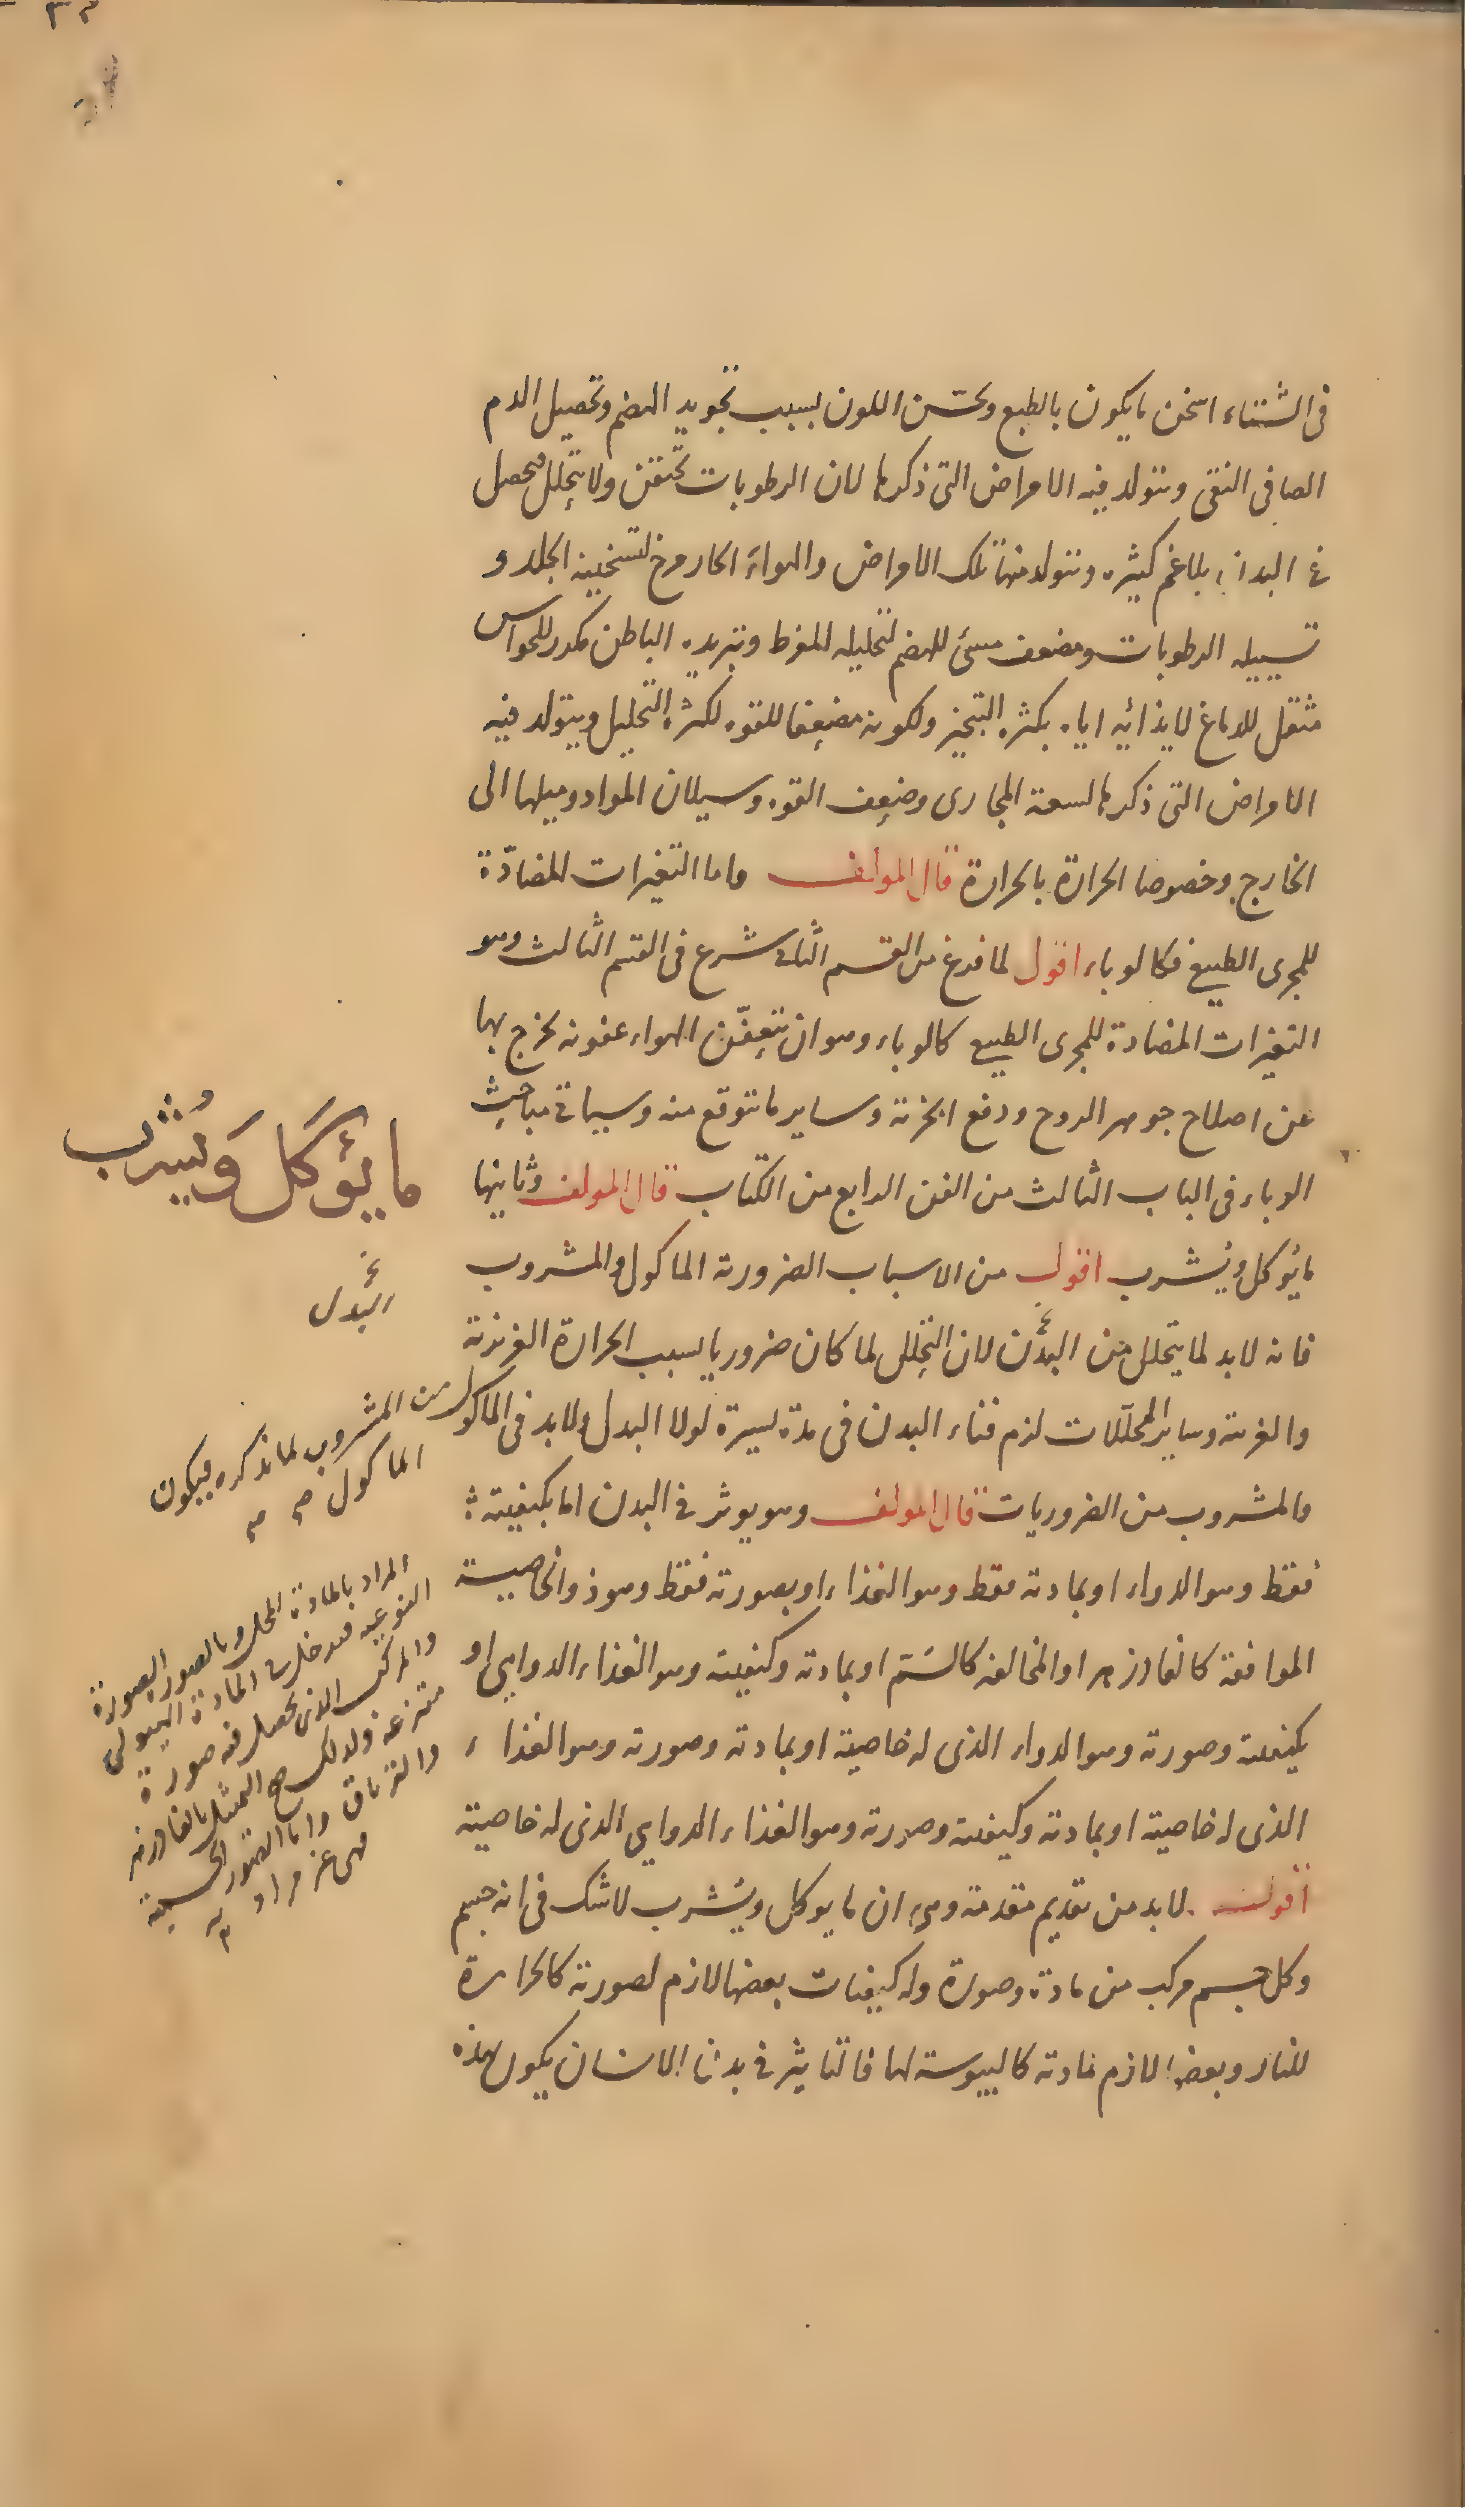 فى الشتاء اسخن ما يكون بالطبع وتحسّن اللون بسبب تجويد الهضم وتحصيل الدم
الصافى النقى وتتولد فيه الامراض التى ذكرها لان الرطوبات تحتقن ولا يتحلل فيحصل
فى البدن بلاغم كثيره وتتولد منها تلك الامراض والهواء الحار مرخ لتسخينه الجلد و
تسييله الرطوبات ومضعف مسئ للهضم لتحليله المفرط وتبريده الباطن مكدر للحواس
مثقل للدماغ لايذائه اياه بكثره التبخير ولكونه مضعفا للقوه لكثره التحليل ويتولد فيه
الامراض التى ذكرها لسعة المجارى وضعف القوه وسيلان المواد وميلها الى
الخارج وخصوصا الحرارة بالحرارة قال المولف واما التغيرات المضادّة
للمجرى الطبيعى فكالوباء اقول لما فرغ من القسم الثانى شرع فى القسم الثالث وهو
التغيرات المضادة للمجرى الطبيعى كالوباء وهو ان يتعفّن الهواء عفونه يخرج بها
عن اصلاح جوهر الروح ودفع ابخرته وساير ما يتوقع منه وسياتى مباحث
الوباء فى الباب الثالث من الفن الرابع من الكتاب قال المولف وثانيها
ما يُوكل ويُشرب اقول من الاسباب الضرورية الماكول والمشروب
فانه لابد لما يتحلل من البدن لان التحلل لما كان ضروريا بسبب الحرارة الغريزية
والغريبة وساير المحللات لزم فناء البدن فى مدة يسيرة لولا البدل ولابد فى الماكول
والمشروب من الضروريات قال المولف وهو يوثر فى البدن اما بكيفيته
فقط وهو الدواء او بمادته فقط وهو الغذاء او بصورته فقط وهو ذو الخاصية
الموافقة كالفادزهر او المخالفه كالسّم او بمادته وكيفيته وهو الغذاء الدوايى او
بكيفيته وصورته وهو الدواء الذى له خاصية او بمادته وصورته وهو الغذاء
الذى له خاصية او بمادته وكيفيته وصورته وهو الغذاء الدوايى الذى له خاصية
اقول لابد من تقديم مقدمة وهى ان ما يوكل ويُشرب لاشك فى انه جسم
وكل جسم مركب من مادة وصورة وله كيفيات بعضها لازم لصورته كالحرارة
للنار وبعضها لازم لمادته كاليبوسة لها فالتاثير فى بدن الانسان يكون بهذه
ما يؤكل ويُشرب
البدل
من المشروب لما نذكره فيكون
الماكول
المراد بالمادة المحل وبالصور الصورة
النوعيه فيدخل فى المادة الهيولى
والمركب الذى يحصل فيه صورة
منتزعة ولذلك صح التمثيل بالفادزهر
والترياق واما الصور الجسمية
فهى غير مراد